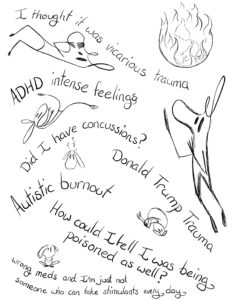 I thought it was vicarious trauma
ADHD intense feelings
Did I have concussions?
Donald Trump Trauma
Autistic burnout
How could I tell I was being
poisoned as well?
wrong meds and I'm just not
someone who can take stimulants every day